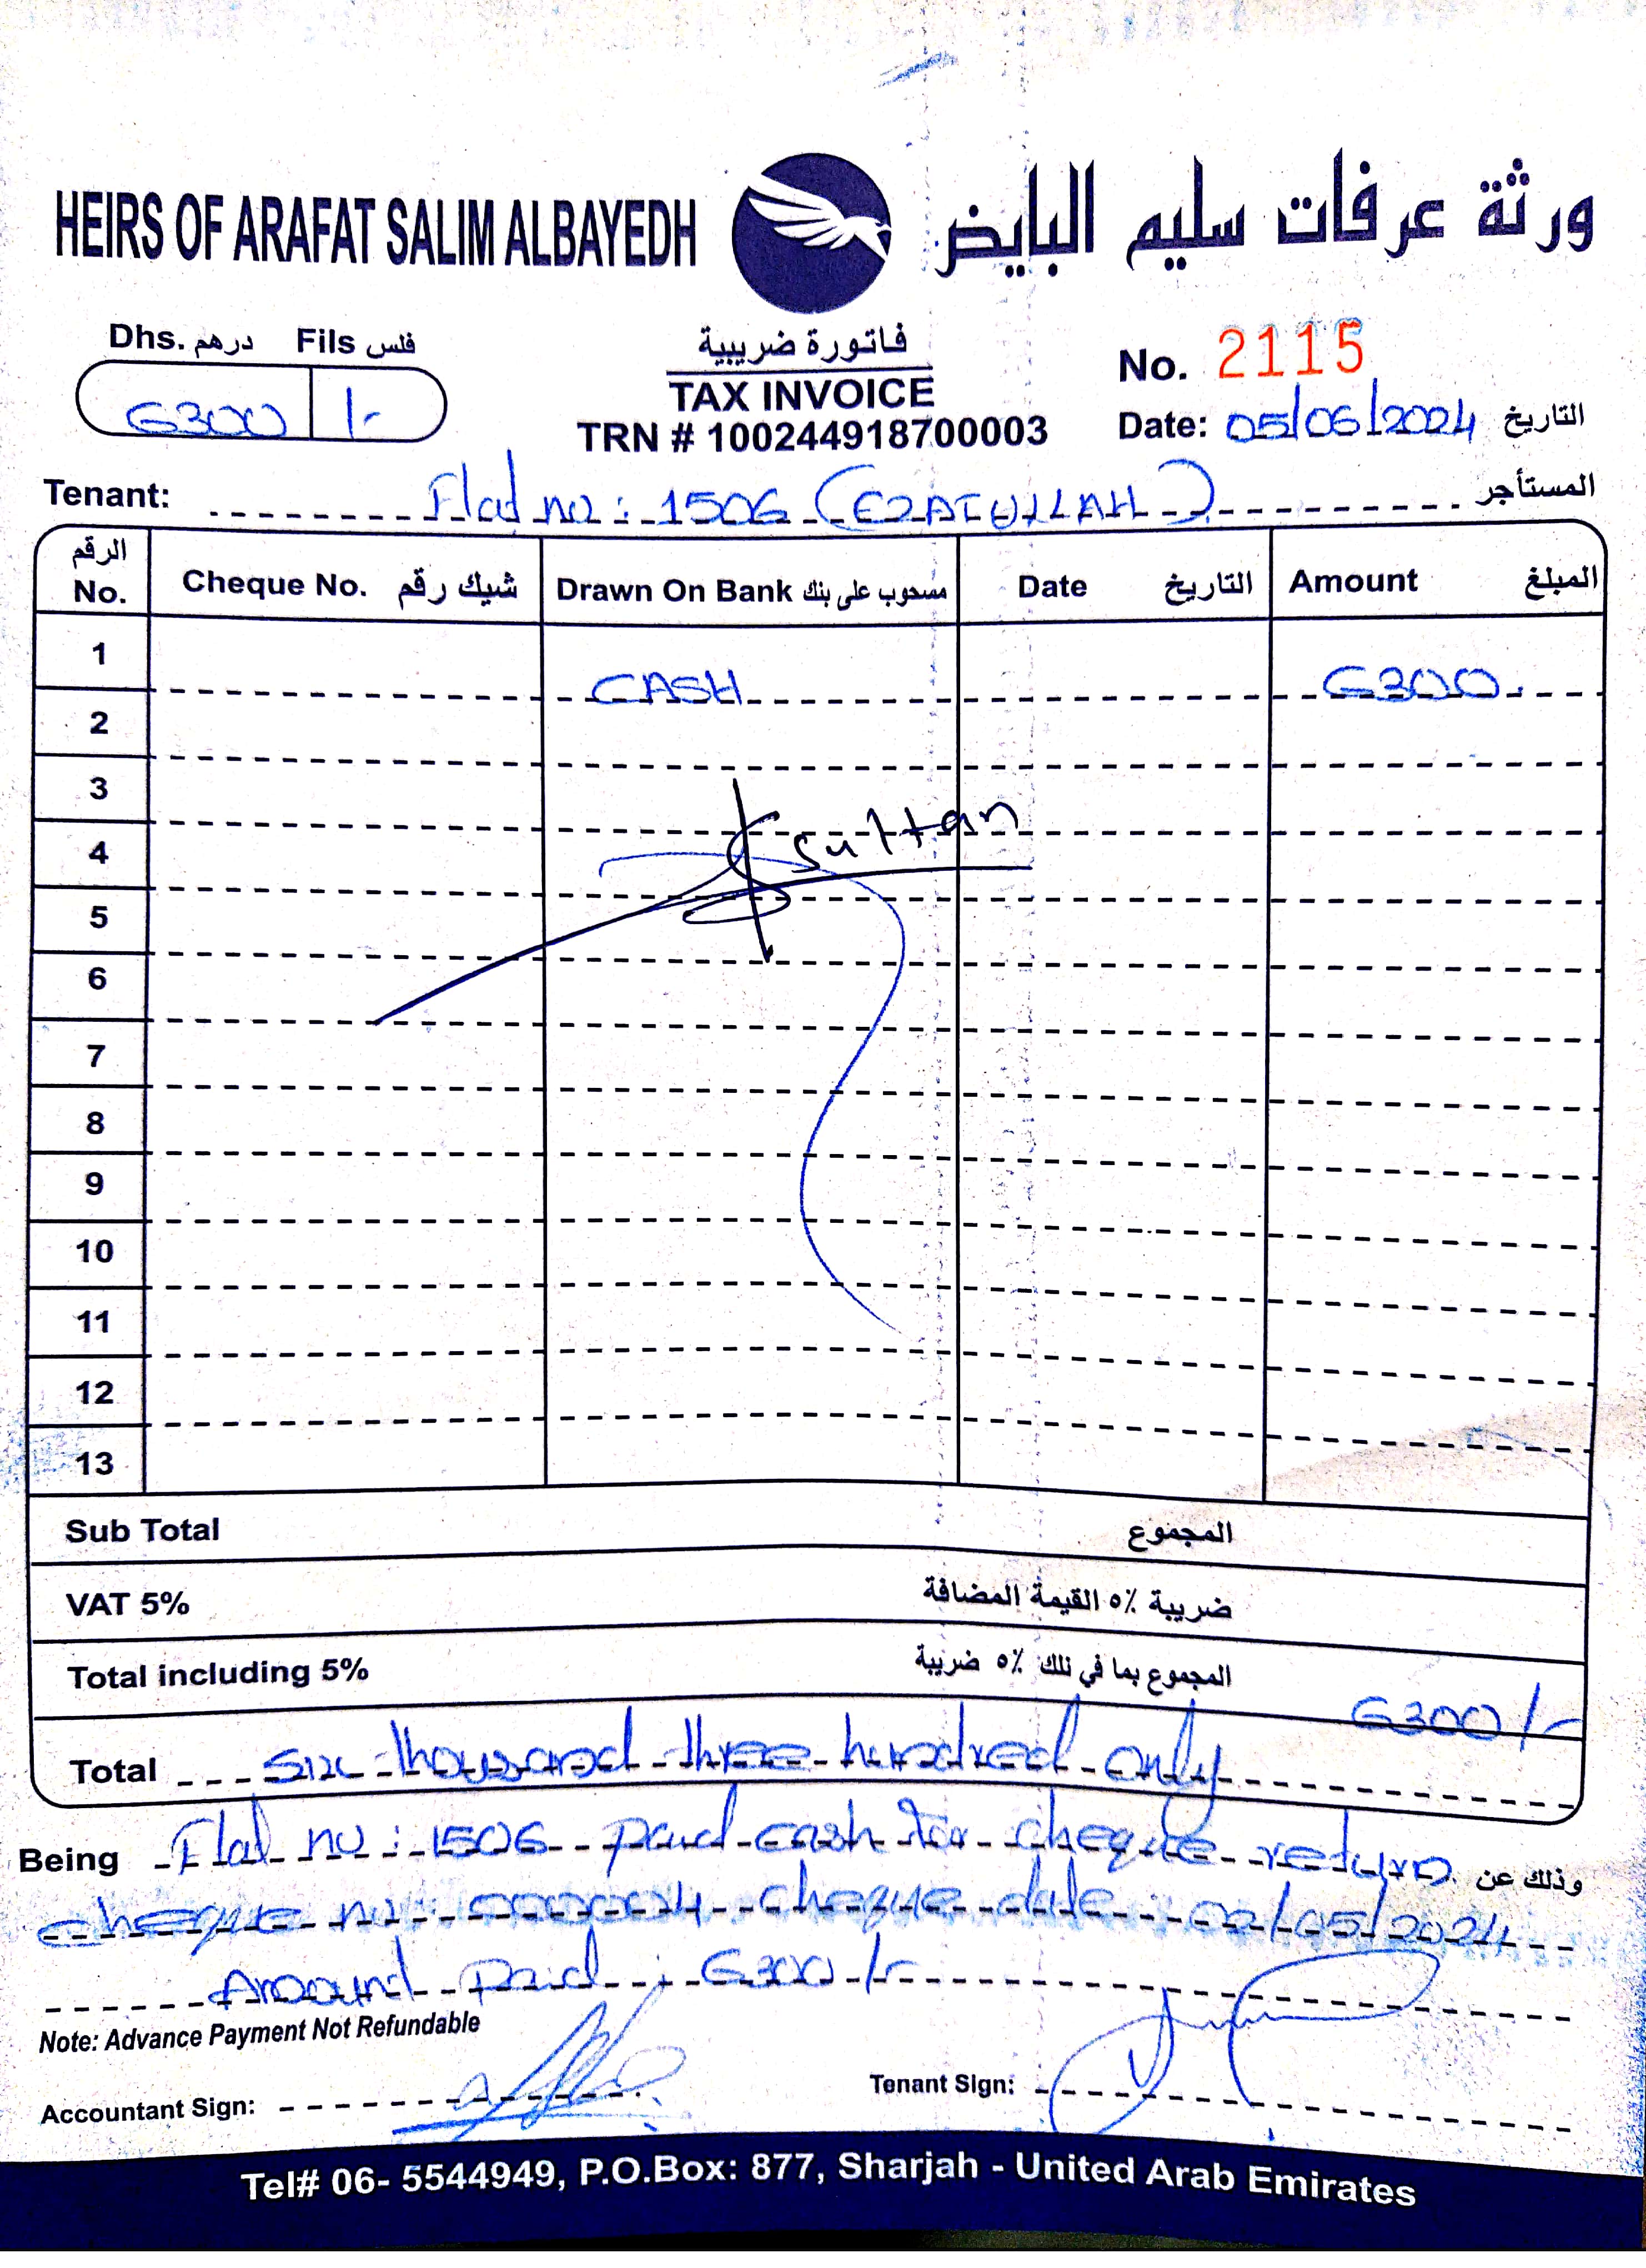 HEIRS OF ARAFAT SALIM ALBAYEDH ورثة عرفات سليم البايض
Dhs. درهم Fils فلس
6300 /-
فاتورة ضريبية
TAX INVOICE
TRN # 100244918700003
No. 2115
Date: 05/06/2024 التاريخ
Tenant: Flat no : 1506 (EZATULLAH) المستأجر
الرقم No. Cheque No. شيك رقم Drawn On Bank مسحوب على بنك Date التاريخ Amount المبلغ
1 CASH 6300
2
3
4 Sultan
5
6
7
8
9
10
11
12
13
Sub Total المجموع
VAT 5% ضريبة ٥٪ القيمة المضافة
Total including 5% المجموع بما في ذلك ٥٪ ضريبة 6300/-
Total Six thousand three hundred only
Being Flat no : 1506 paid cash for cheque return وذلك عن
cheque no: 000004 cheque date : 02/05/2024
Amount paid : 6300/-
Note: Advance Payment Not Refundable
Accountant Sign: Tenant Sign:
Tel# 06- 5544949, P.O.Box: 877, Sharjah - United Arab Emirates